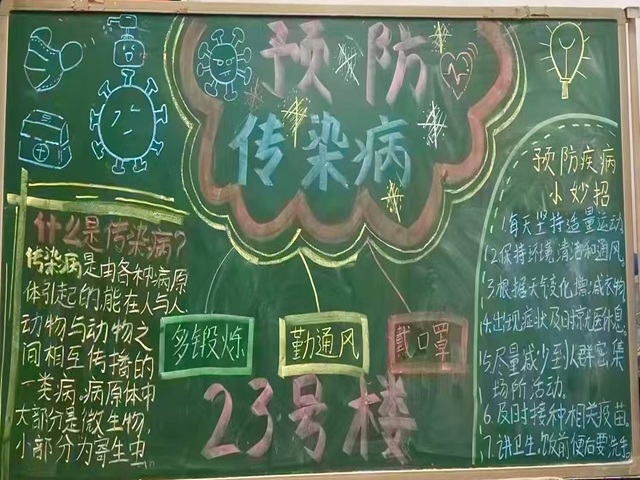 预防
传染病
什么是传染病?
传染病是由各种病原
体引起的,能在人与人、
动物与动物之
间相互传播的
一类病。病原体中
大部分是微生物,
小部分为寄生虫
多锻炼
勤通风
戴口罩
23号楼
预防疾病
小妙招
1.每天坚持适量运动
2.保持环境清洁和通风
3.根据天气变化增减衣物
4.出现症状及时就医休息
5.尽量减少到人群密集
场所活动.
6.及时接种相关疫苗
7.讲卫生,饭前便后要洗手